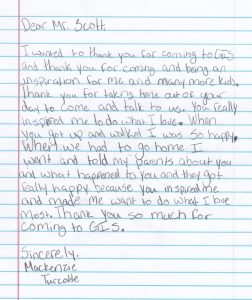 Dear Mr. Scott,
I wanted to thank you for coming to GIS
and thank you for coming and being an
inspiration for me and many more kids.
Thank you for taking time out of your
day to come and talk to us. You really
inspired me to do what I love. When
you got up and walked I was so happy.
When we had to go home I
went and told my parents about you
and what happened to you and they got
really happy because you inspired me
and made me want to do what I love
most. Thank you so much for
coming to G.I.S.
Sincerely,
Mackenzie
Turcotte